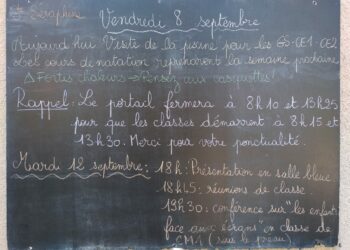 Ste Séraphine
Vendredi 8 septembre
Aujourd'hui Visite de la piscine pour les GS-CE1-CE2
les cours de natation reprendront la semaine prochaine
⚠ Fortes chaleurs → Pensez aux casquettes!
Rappel: Le portail fermera à 8h10 et 13h25
pour que les classes démarrent à 8h15 et
13h30. Merci pour votre ponctualité.
Mardi 12 septembre: 18h: Présentation en salle bleue
18h45: réunions de classe
19h30: conférence sur "les enfants
face aux écrans" en classe de
CM1 (sous le préau)